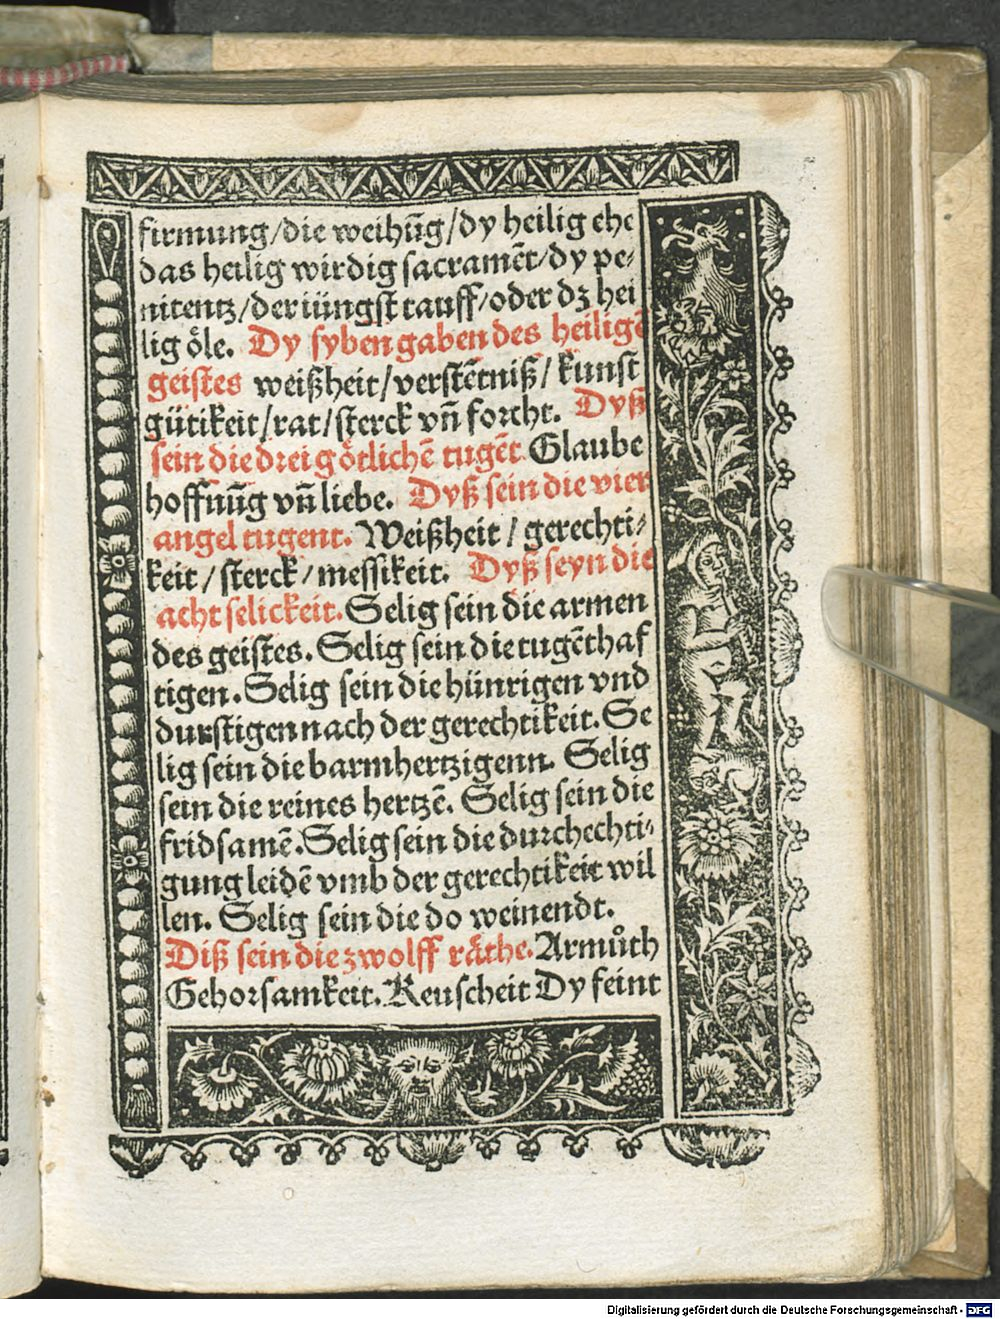 firmung/die weihūg/dy heilig ehe
das heilig wirdig sacramēt/dy pe⸗
nitentz/der iüngst tauff/oder dz hei
lig öle. Dy syben gaben des heiligē
geistes weißheit/verstētniß/kunst
gütikeit/rat/sterck vn̄ forcht. Dyß
sein die drei götlichē tugēt Glaube
hoffnūg vn̄ liebe. Dyß sein die vier
angel tugent. Weißheit / gerechti⸗
keit / sterck / messikeit. Dyß seyn die
acht selickeit. Selig sein die armen
des geistes. Selig sein die tugēthaf
tigen. Selig sein die hünrigen vnd
durstigen nach der gerechtikeit. Se
lig sein die barmhertzigenn. Selig
sein die reines hertzē. Selig sein die
fridsamē. Selig sein die durchechti⸗
gung leidē vmb der gerechtikeit wil
len. Selig sein die do weinendt.
Diß sein die zwolff räthe. Armůth
Gehorsamkeit. Keuscheit Dy feint
Digitalisierung gefördert durch die Deutsche Forschungsgemeinschaft - DFG